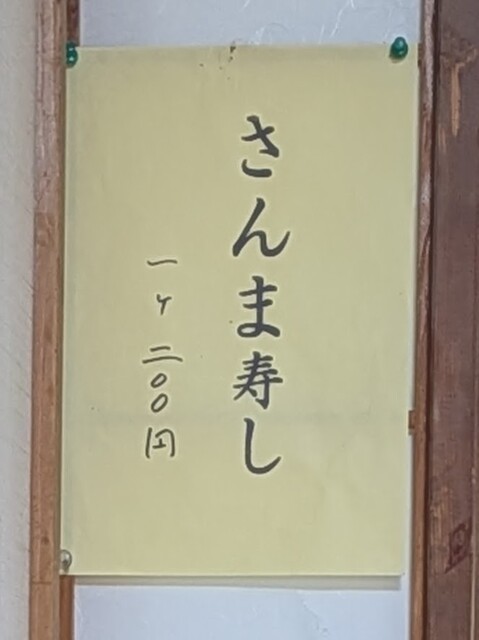 さんま寿し
一ヶ二〇〇円